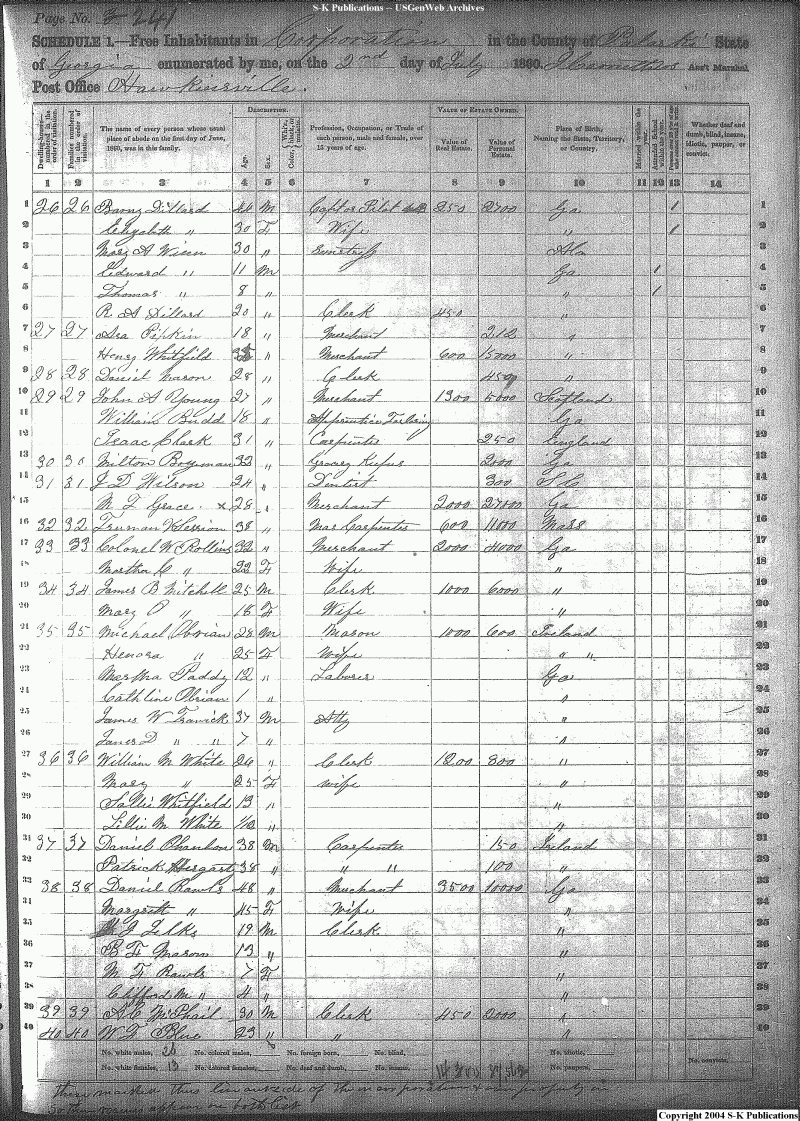 S-K Publications -- USGenWeb Archives
Page No. 3 241
SCHEDULE 1.—Free Inhabitants in Corporation in the County of Pulaski State
of Georgia enumerated by me, on the 2nd day of July 1860. Ass't Marshal
Post Office Hawkinsville.
Dwelling-houses—numbered in the order of visitation.
Families numbered in the order of visitation.
The name of every person whose usual place of abode on the first day of June, 1860, was in this family.
DESCRIPTION.
Age.
Sex.
Color, White, black, or mulatto.
Profession, Occupation, or Trade of each person, male and female, over 15 years of age.
VALUE OF ESTATE OWNED.
Value of Real Estate.
Value of Personal Estate.
Place of Birth, Naming the State, Territory, or Country.
Married within the year.
Attended School within the year.
Whether deaf and dumb, blind, insane, idiotic, pauper, or convict.
1 2 3 4 5 6 7 8 9 10 11 12 13 14
1 26 26 Dillard 44 M Capt or Pilot 250 2700 Ga 1 1
2 Elizabeth " 30 F Wife " 1 2
3 Mary A 30 " Ala 3
4 Edward " 11 M Ga 1 4
5 Thomas " 8 " " 1 5
6 R A Dillard 20 " Clerk 450 6
7 27 27 Asa Pipkin 18 " Merchant 212 " 7
8 Henry Whitfield " Merchant 600 15000 " 8
9 28 28 Daniel Mason 28 " Clerk 450 " 9
10 29 29 John A Young 27 " Merchant 1300 5000 Scotland 10
11 William Budd 18 " Apprentice Tailoring Ga 11
12 Isaac Clark 31 " Carpenter 250 England 12
13 30 30 Milton Bozeman 32 " Grocery 2000 Ga 13
14 31 31 J D Wilson 24 " Dentist 300 S C 14
15 M F Grace x 28 " Merchant 2000 27000 Ga 15
16 32 32 Truman 38 " Mas Carpenter 600 11000 Mass 16
17 33 33 Colonel W Rollins 32 " Merchant 2000 4000 Ga 17
18 Martha C " 22 F Wife " 18
19 34 34 James B Mitchell 25 M Clerk 1000 6000 " 19
20 Mary P " 18 F Wife " 20
21 35 35 Michael Obrian 28 M Mason 1000 600 Ireland 21
22 Henora " 25 F Wife " " 22
23 Martha Paddy 12 " Laborer Ga 23
24 Cathline Obrian 1 " " 24
25 James W Trawick 37 M Atty " 25
26 James D " " 7 " " 26
27 36 36 William M White 26 " Clerk 1200 800 " 27
28 Mary " 25 F wife " 28
29 Sallie Whitfield 13 " " 29
30 Lillie M White " " 30
31 37 37 Daniel 38 M Carpenter 150 Ireland 31
32 Patrick 38 " " " 100 " 32
33 38 38 Daniel Rawls 48 " Merchant 3500 10000 Ga 33
34 Margrett " 45 F Wife " 34
35 J Filks 19 M Clerk " 35
36 B F Mason 13 " " 36
37 M F Rawls 7 F " 37
38 Clifford M " 4 " " 38
39 39 39 A C McPhail 30 M Clerk 450 2000 " 39
40 40 40 W F Blue 23 " " " 40
No. white males, 26 No. colored males, No. foreign born, No. blind, No. idiotic, No. convicts,
No. white females, 13 No. colored females, No. deaf and dumb, No. insane, No. paupers,
those marked thus live outside of the
So appear on both list
Copyright 2004 S-K Publications